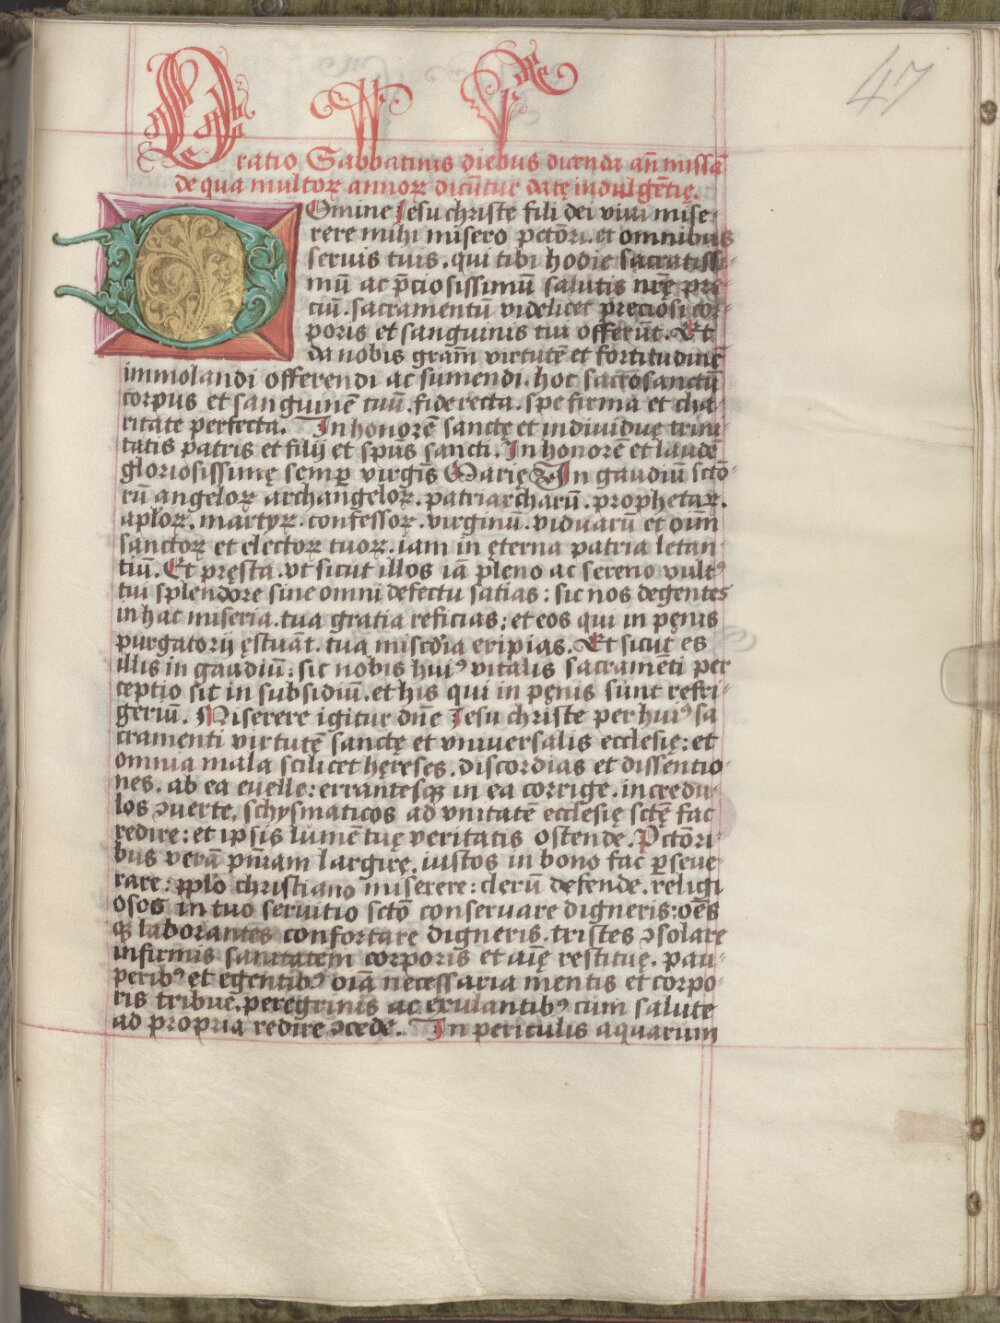 47
Oratio Sabbatinis diebus dicenda añ missã
de qua multoꝝ annoꝝ dicũtur datę indulgẽtię.
Domine Jesu christe fili dei viui mise-
rere mihi misero pctõri. et omnibus
seruis tuis. qui tibi hodie sacratissi-
mũ ac p̃ciosissimũ salutis nr̃ę pre-
ciũ. sacramentũ videlicet preciosi cor-
poris et sanguinis tui offerũt. Et
da nobis gram̃ virtutẽ et fortitudinẽ
immolandi offerendi ac sumendi. hoc sacrosanctũ
corpus et sanguinẽ tuũ. fide recta. spe firma et cha-
ritate perfecta. In honorẽ sanctę et indiuiduę trini-
tatis patris et filij et sp̃us sancti. In honorẽ et laudẽ
gloriosissimę semp̱ virgĩs Marię Vĩ In gaudiũ sctõ-
rũ angeloꝝ archangeloꝝ. patriarcharũ. prophetaꝝ.
ap̃loꝝ. martyꝝ. confessoꝝ. virginũ. viduarũ et oĩm
sanctoꝝ et electoꝝ tuoꝝ. iam in ęterna patria letan-
tiũ. Et pręsta. vt sicut illos iã pleno ac sereno vultꝰ
tui splendore sine omni defectu satias: sic nos degentes
in hac miseria. tua gratia reficias: et eos qui in pęnis
purgatorij ęstuãt. tua miscd̃ia eripias. Et sicut es
illis in gaudiũ: sic nobis huiꝰ vitalis sacramẽti per-
ceptio sit in subsidiũ. et his qui in pęnis sunt refri-
geriũ. Miserere igitur dñe Jesu christe per huiꝰ sa
cramenti virtutẽ sanctę et vniuersalis ecclesię: et
omnia mala scilicet hęreses. discordias et dissentio-
nes. ab ea euelle: errantesqꝫ in ea corrige. incredu-
los ꝯuerte. schysmaticos ad vnitatẽ ecclesię sctẽ fac
redire: et ipsis lumẽ tuę veritatis ostende. Pctõri-
bus verã pñiam largirę. iustos in bono fac ꝑseue-
rare: pplo christiano miserere: clerũ defende. religi
osos in tuo seruitio sctõ conseruare digneris: oẽs
qꝫ laborantes confortare digneris. tristes ꝯsolare
infirmis sanitatem corporis et aĩę restituę. pau-
peribꝰ et egentibꝰ oĩa necessaria mentis et corpo-
ris tribue. peregrinis ac exulantibꝰ cum salute
ad propria redire ꝯcede. In periculis aquarum